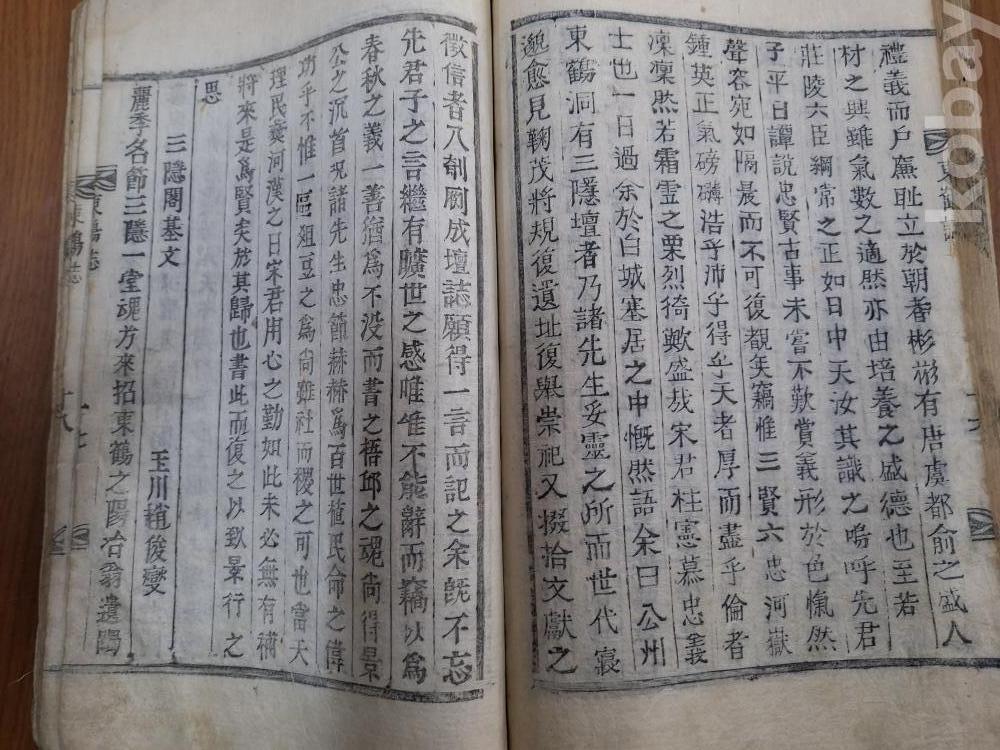 禮義而戶廉耻立於朝者彬彬有唐虞都俞之盛人
材之興雖氣數之適然亦由培養之盛德也至若
莊陵六臣綱常之正如日中天汝其識之嗚呼先君
子平日譚說忠賢古事未嘗不歎賞義形於色愾然
聲容宛如隔晨而不可復覩矣竊惟三賢六忠河嶽
鍾英正氣磅礴浩乎沛乎得乎天者厚而盡乎倫者
凜凜然若霜雪之栗烈猗歟盛哉宋君柱憲慕忠義
士也一日過余於白城塞居之中慨然語余曰公州
東鶴洞有三隱壇者乃諸先生妥靈之所而世代寢
邈愈見鞠茂將規復遺址復舉崇祀又掇拾文獻之
徵信者入剞劂成壇誌願得一言而記之余旣不忘
先君子之言繼有曠世之感唯唯不能辭而竊以爲
春秋之義一善猶爲不没而書之梧邱之魂尙得景
公之沉首況諸先生忠節赫赫爲百世植民命之偉
功乎不惟一區俎豆之爲尙雖社而稷之可也噫天
理民彛河漢之日宋君用心之勤如此未必無有補
將來是爲賢矣於其歸也書此而復之以致景行之
思
三隱閣基文
玉川趙俊燮
麗季名節三隱一堂魂方來招東鶴之陽冶翁遺躅
東鶴誌
kobay